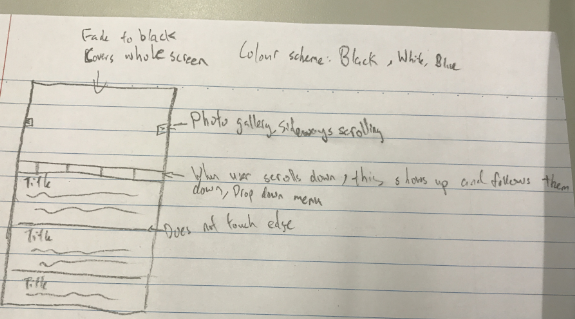 Fade to black
Covers whole screen
Colour scheme: Black, White, Blue
Photo gallery, sideways scrolling
When user scrolls down, this shows up and follows them
down, Drop down menu
Title
Does not touch edge
Title
Title